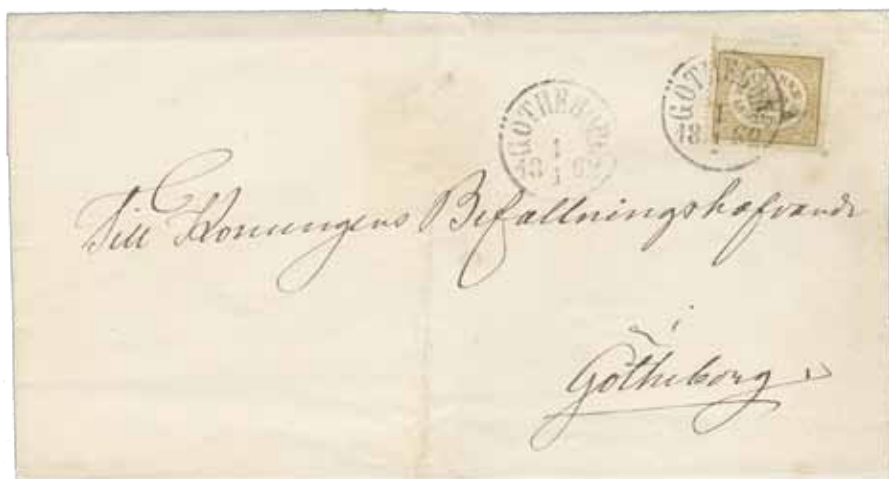 GÖTHEBORG
1
1
GÖTHEBORG
1
1
Till Konungens Befallningshafvande
i
Götheborg